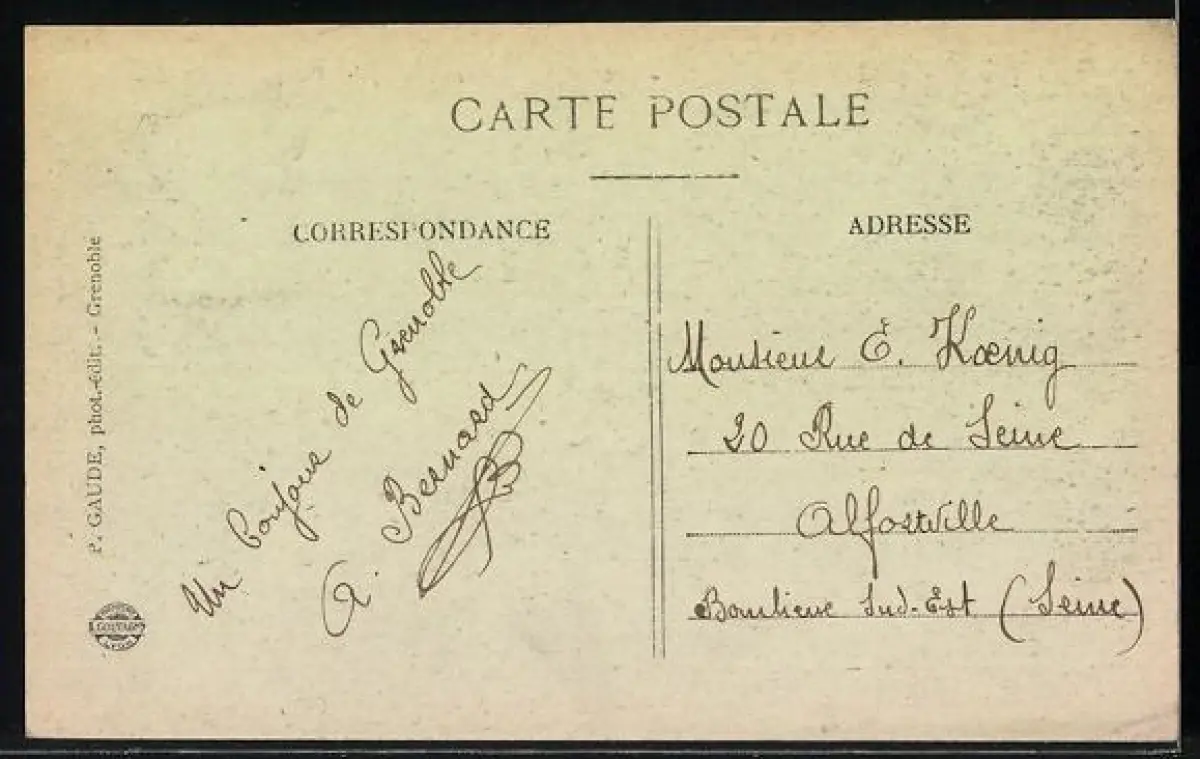 CARTE POSTALE
CORRESPONDANCE
ADRESSE
P. GAUDE, phot.-édit. - Grenoble
Un bonjour de Grenoble
A. Bernard
Monsieur E. Kœnig
20 Rue de Seine
Alfortville
Banlieue Sud-Est (Seine)